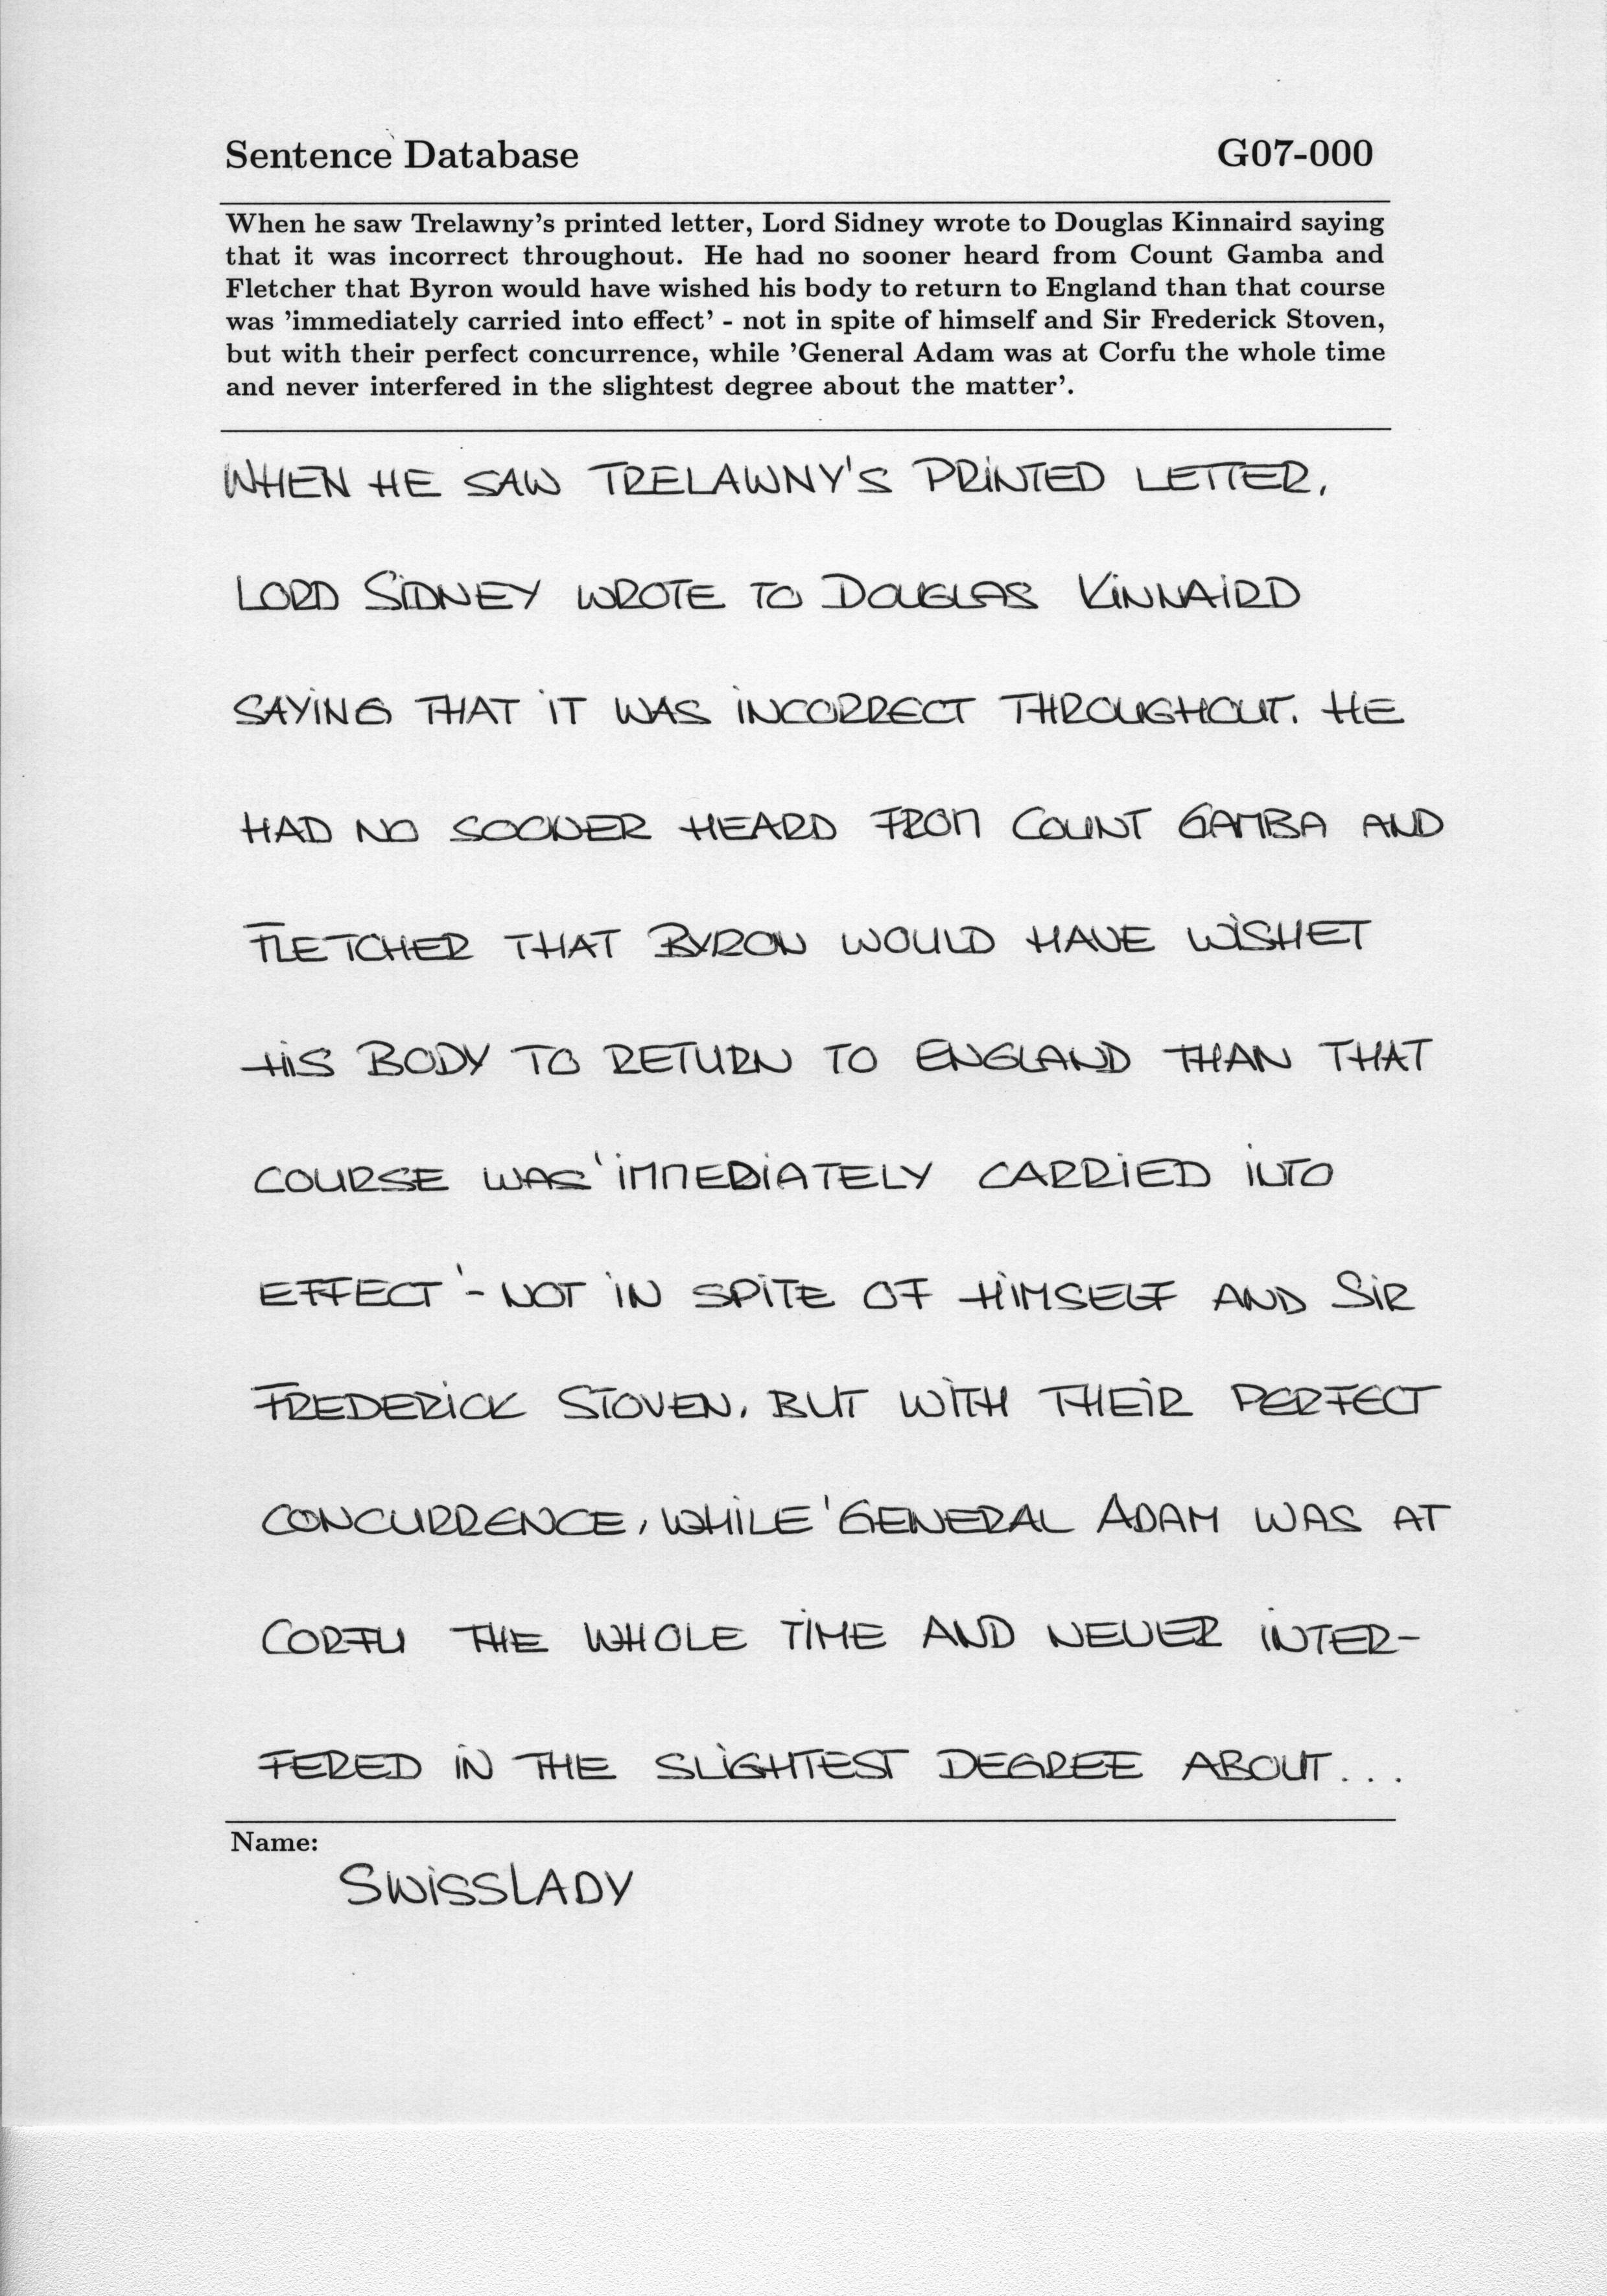 Sentence Database G07-000
When he saw Trelawny's printed letter, Lord Sidney wrote to Douglas Kinnaird saying
that it was incorrect throughout. He had no sooner heard from Count Gamba and
Fletcher that Byron would have wished his body to return to England than that course
was 'immediately carried into effect' - not in spite of himself and Sir Frederick Stoven,
but with their perfect concurrence, while 'General Adam was at Corfu the whole time
and never interfered in the slightest degree about the matter'.
WHEN HE SAW TRELAWNY'S PRINTED LETTER,
LORD SIDNEY WROTE TO DOUGLAS KINNAIRD
SAYING THAT IT WAS INCORRECT THROUGHOUT. HE
HAD NO SOONER HEARD FROM COUNT GAMBA AND
FLETCHER THAT BYRON WOULD HAVE WISHET
HIS BODY TO RETURN TO ENGLAND THAN THAT
COURSE WAS 'IMMEDIATELY CARRIED INTO
EFFECT' - NOT IN SPITE OF HIMSELF AND SIR
FREDERICK STOVEN, BUT WITH THEIR PERFECT
CONCURRENCE, WHILE 'GENERAL ADAM WAS AT
CORFU THE WHOLE TIME AND NEVER INTER-
FERED IN THE SLIGHTEST DEGREE ABOUT...
Name:
SWISSLADY